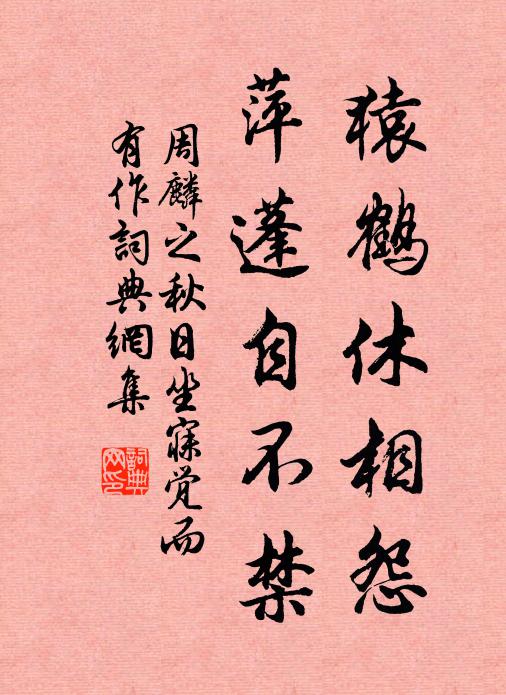 猿鶴休相怨
萍蓬自不禁
周麟之秋日坐寐觉而
有作詞典網集
詞典
网印